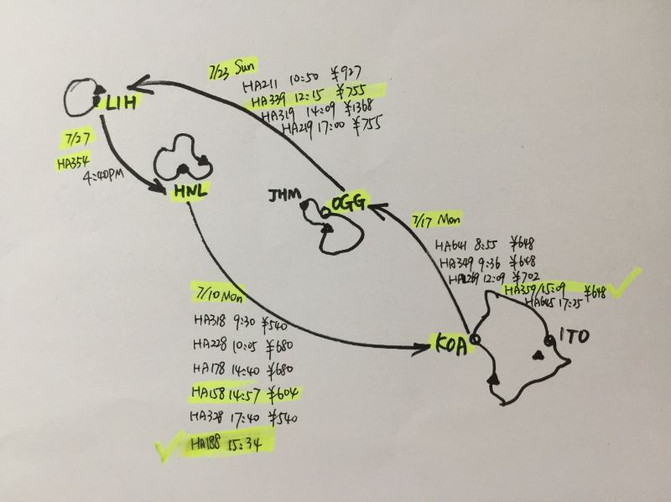 7/23 Sun
HA211 10:50 ¥927
HA339 12:15 ¥755
HA319 14:09 ¥1368
HA219 17:00 ¥755
LIH
7/27
HA354
4:40PM
HNL
JHM
OGG
7/17 Mon
HA641 8:55 ¥648
HA349 9:36 ¥648
HA269 12:09 ¥702
HA359/15:09 ¥648
HA645 17:25
KOA
ITO
7/10 Mon
HA318 9:30 ¥540
HA228 10:05 ¥680
HA178 14:40 ¥680
HA158 14:57 ¥604
HA328 17:40 ¥540
HA188 15:34